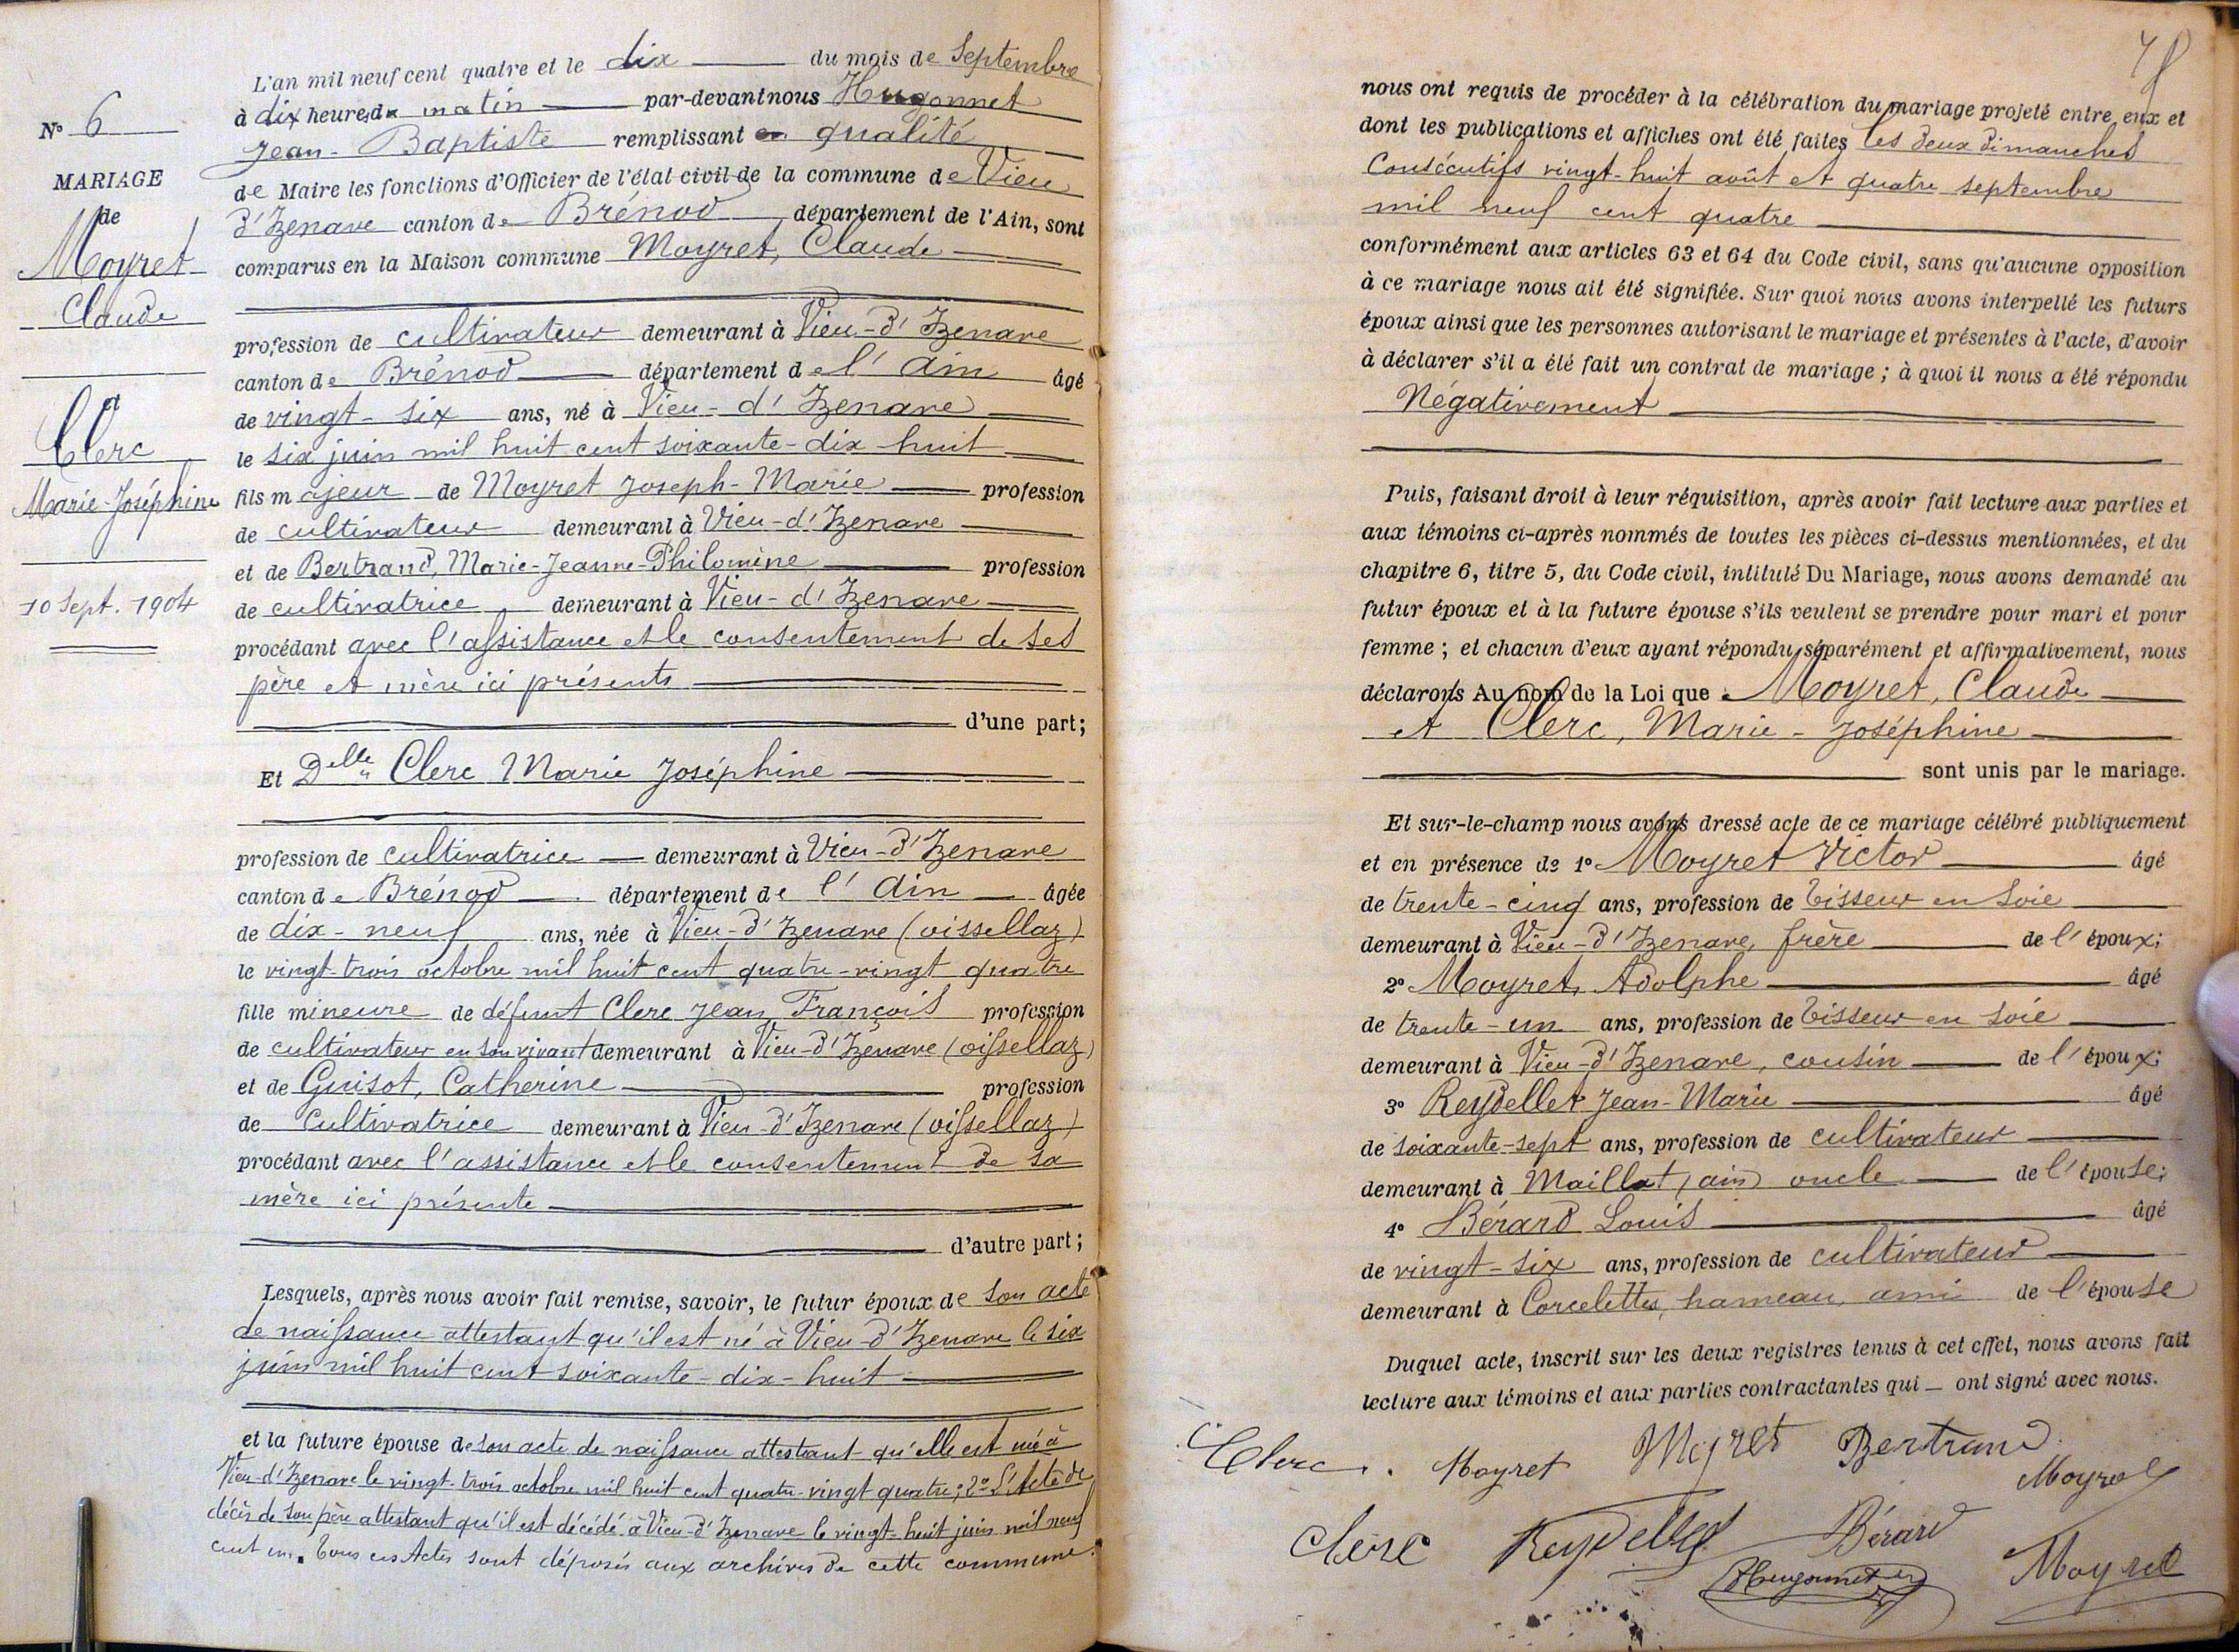 N° 6
MARIAGE
de
Moyret
Claude
et
Clerc
Marie-Joséphine
10 Sept. 1904
L'an mil neuf cent quatre et le dix du mois de Septembre
à dix heures du matin par-devant nous Hugonnet
Jean-Baptiste remplissant en qualité
de Maire les fonctions d'Officier de l'état civil de la commune de Vieu
d'Izenave canton de Brénod département de l'Ain, sont
comparus en la Maison commune Moyret, Claude
profession de cultivateur demeurant à Vieu-d'Izenave
canton de Brénod département de l'Ain âgé
de vingt-six ans, né à Vieu-d'Izenave
le six juin mil huit cent soixante-dix-huit
fils majeur de Moyret Joseph-Marie profession
de cultivateur demeurant à Vieu-d'Izenave
et de Bertrand, Marie-Jeanne-Philomène profession
de cultivatrice demeurant à Vieu-d'Izenave
procédant avec l'assistance et le consentement de ses
père et mère ici présents
d'une part;
Et Delle Clerc Marie Joséphine
profession de cultivatrice demeurant à Vieu-d'Izenave
canton de Brénod département de l'Ain âgée
de dix-neuf ans, née à Vieu-d'Izenave (oissellaz)
le vingt-trois octobre mil huit cent quatre-vingt quatre
fille mineure de défunt Clerc Jean François profession
de cultivateur en son vivant demeurant à Vieu-d'Izenave (oissellaz)
et de Guisot, Catherine profession
de Cultivatrice demeurant à Vieu-d'Izenave (oissellaz)
procédant avec l'assistance et le consentement de sa
mère ici présente
d'autre part;
Lesquels, après nous avoir fait remise, savoir, le futur époux de son acte
de naissance attestant qu'il est né à Vieu-d'Izenave le six
juin mil huit cent soixante-dix-huit
et la future épouse de son acte de naissance attestant qu'elle est née à
Vieu-d'Izenave le vingt-trois octobre mil huit cent quatre-vingt quatre; 2° L'Acte de
décès de son père attestant qu'il est décédé à Vieu-d'Izenave le vingt-huit juin mil neuf
cent un. Tous ces Actes sont déposés aux archives de cette commune.
nous ont requis de procéder à la célébration du mariage projeté entre eux et
dont les publications et affiches ont été faites les deux dimanches
Consécutifs vingt-huit août et quatre septembre
mil neuf cent quatre
conformément aux articles 63 et 64 du Code civil, sans qu'aucune opposition
à ce mariage nous ait été signifiée. Sur quoi nous avons interpellé les futurs
époux ainsi que les personnes autorisant le mariage et présentes à l'acte, d'avoir
à déclarer s'il a été fait un contrat de mariage; à quoi il nous a été répondu
Négativement
Puis, faisant droit à leur réquisition, après avoir fait lecture aux parties et
aux témoins ci-après nommés de toutes les pièces ci-dessus mentionnées, et du
chapitre 6, titre 5, du Code civil, intitulé Du Mariage, nous avons demandé au
futur époux et à la future épouse s'ils veulent se prendre pour mari et pour
femme; et chacun d'eux ayant répondu séparément et affirmativement, nous
déclarons Au nom de la Loi que Moyret, Claude
et Clerc, Marie-Joséphine
sont unis par le mariage.
Et sur-le-champ nous avons dressé acte de ce mariage célébré publiquement
et en présence de 1° Moyret Victor âgé
de trente-cinq ans, profession de Tisseur en Soie
demeurant à Vieu-d'Izenave, frère de l'époux;
2° Moyret, Adolphe âgé
de trente-un ans, profession de Tisseur en Soie
demeurant à Vieu-d'Izenave, cousin de l'époux;
3° Reydellet Jean-Marie âgé
de soixante-sept ans, profession de cultivateur
demeurant à Maillat (ain) oncle de l'épouse;
4° Bérard Louis âgé
de vingt-six ans, profession de cultivateur
demeurant à Corcelettes, hameau, ami de l'épouse
Duquel acte, inscrit sur les deux registres tenus à cet effet, nous avons fait
lecture aux témoins et aux parties contractantes qui ont signé avec nous.
Clerc. Moyret Moyret Bertrand Moyret
Clerc Reydellet Bérard
Hugonnet Moyret